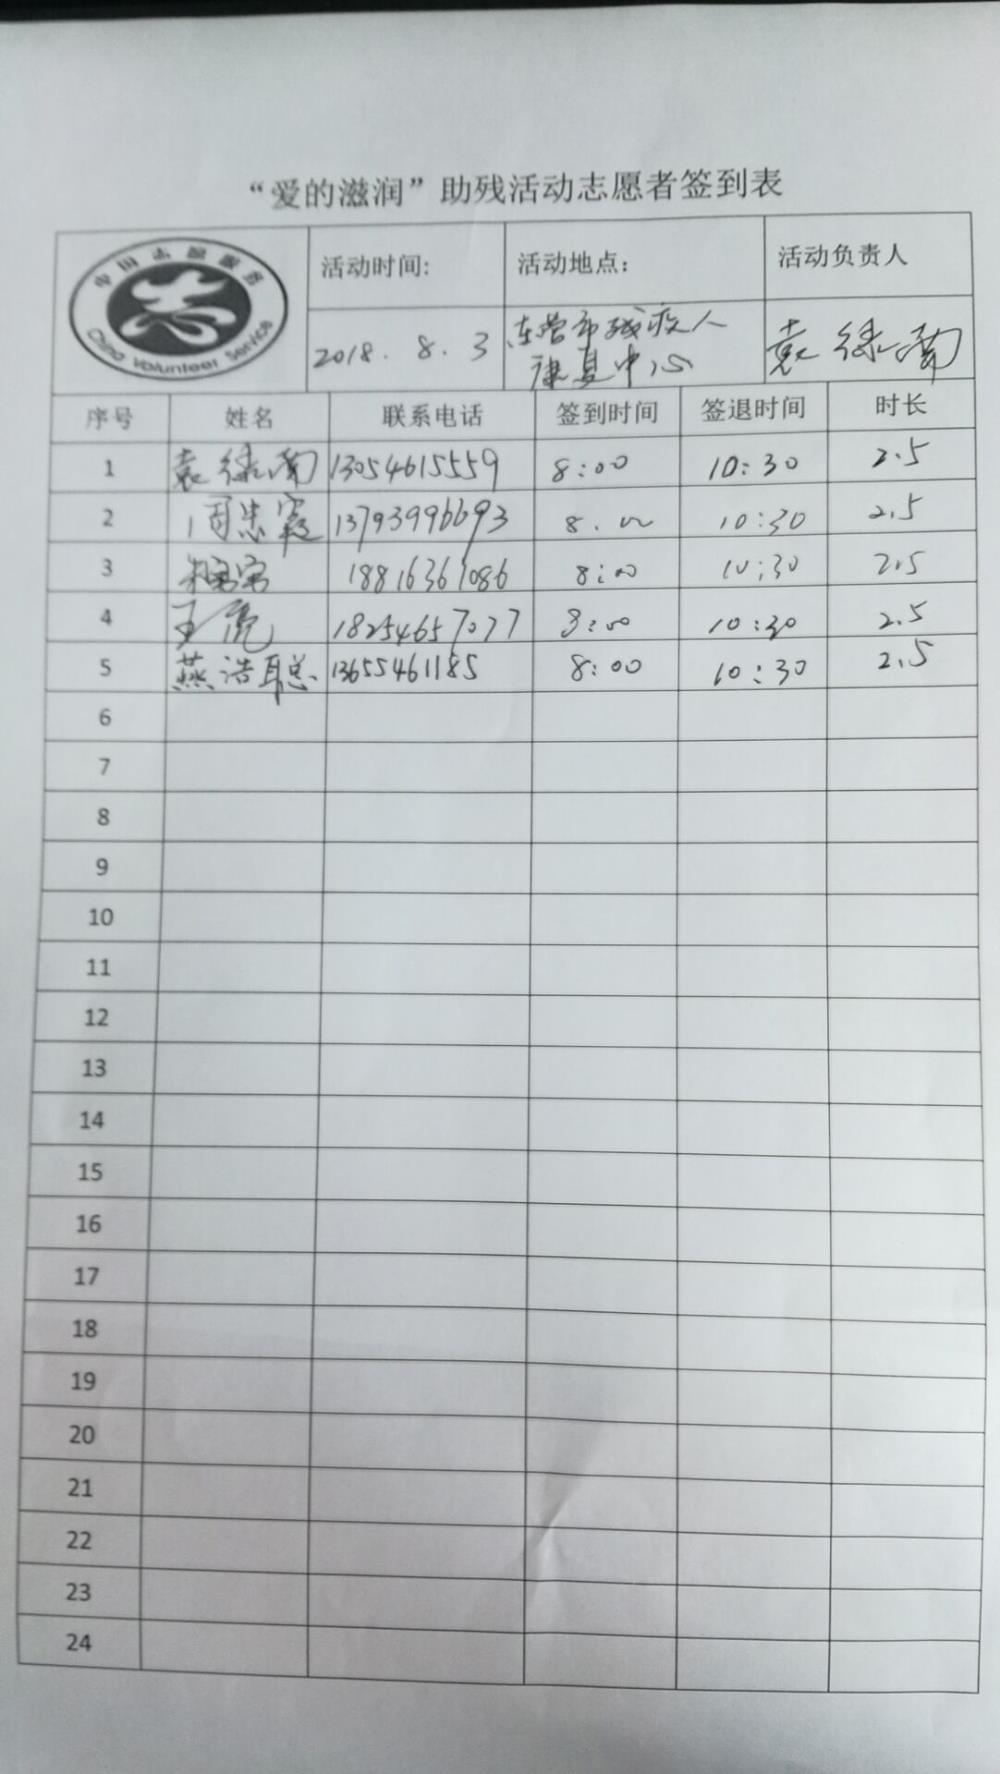 “爱的滋润”助残活动志愿者签到表
中国志愿服务
China Volunteer Service
活动时间: 活动地点： 活动负责人
2018.8.3 东营市残疾人康复中心 袁绿南
序号 姓名 联系电话 签到时间 签退时间 时长
1 袁绿南 13054615559 8:00 10:30 2.5
2 周忠霞 13793996693 8:00 10:30 2.5
3 18816361086 8:00 10:30 2.5
4 王亮 18254657077 8:00 10:30 2.5
5 燕浩聪 13655461185 8:00 10:30 2.5
6
7
8
9
10
11
12
13
14
15
16
17
18
19
20
21
22
23
24